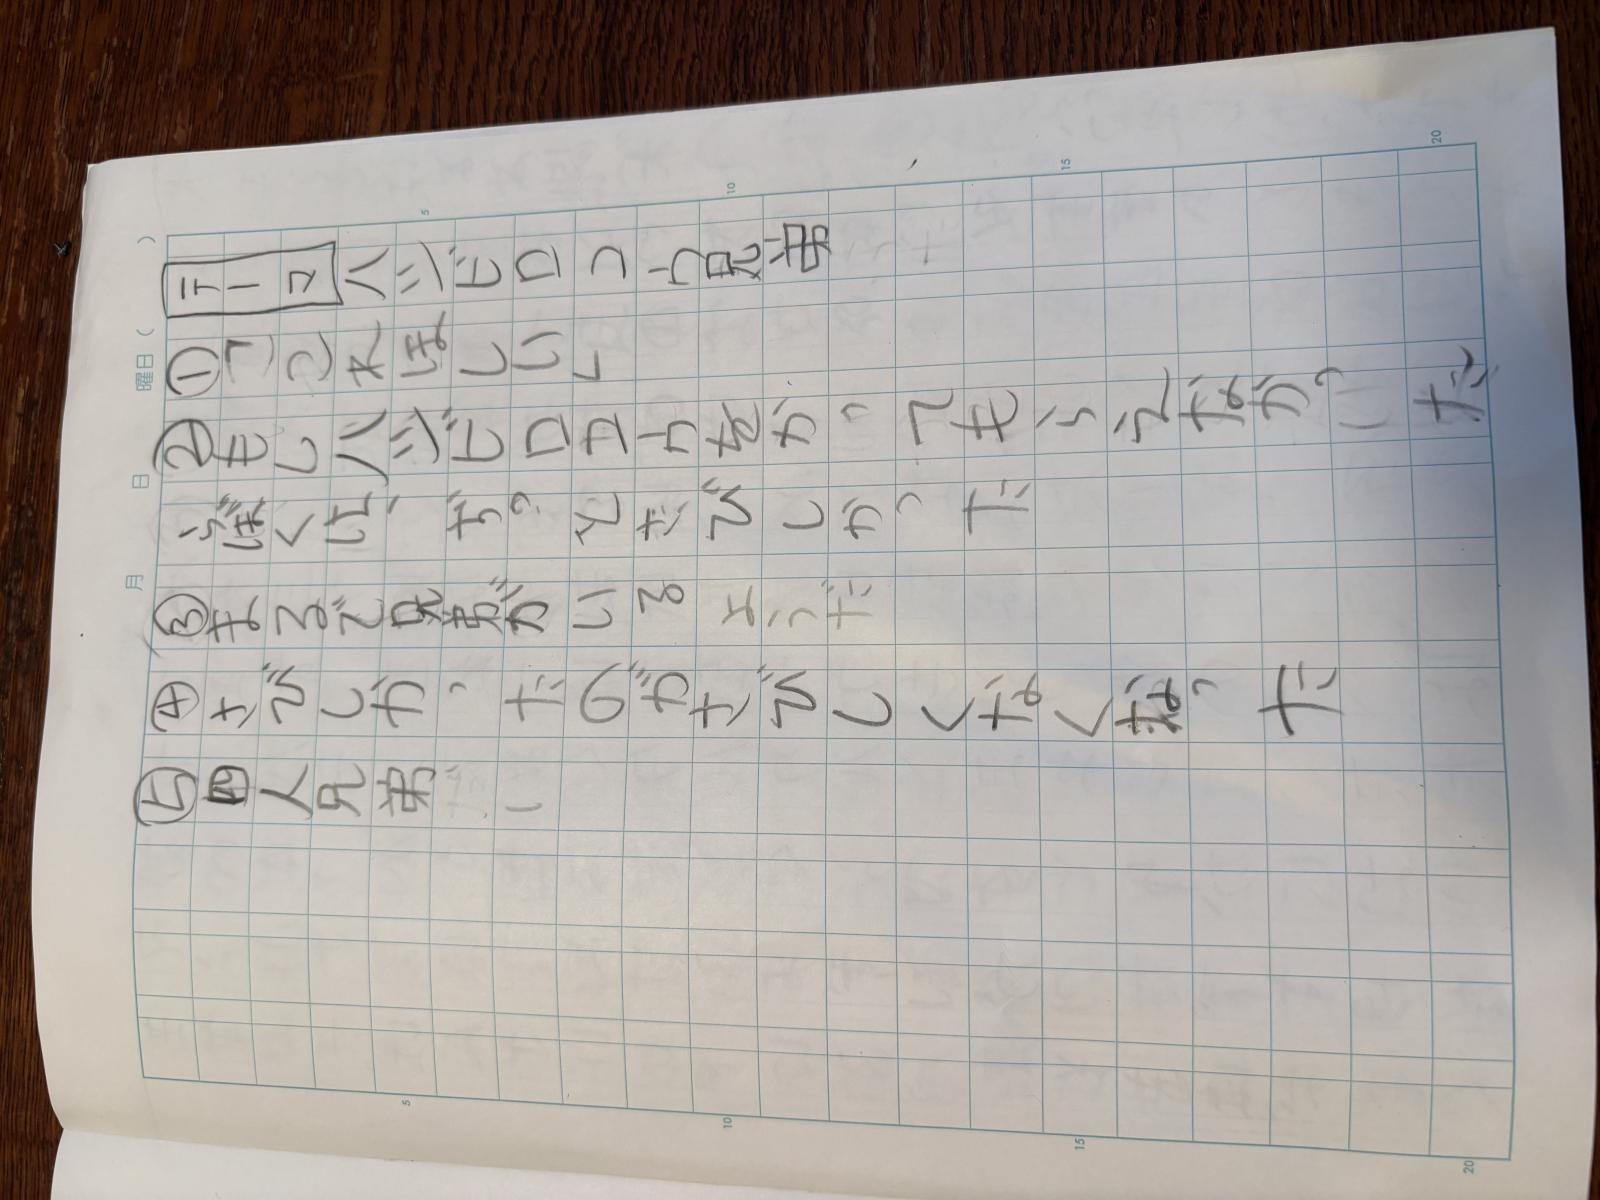 月 日 曜日( )
5 10 15 20
テーマ ハシビロコウ兄弟
①「これほしい」
②もしハシビロコウをかってもらえなかった
らぼくは、ずっとさびしかった
③まるで兄弟がいるようだ
④さびしかったのがさびしくなくなった
⑤四人兄弟
5 10 15 20